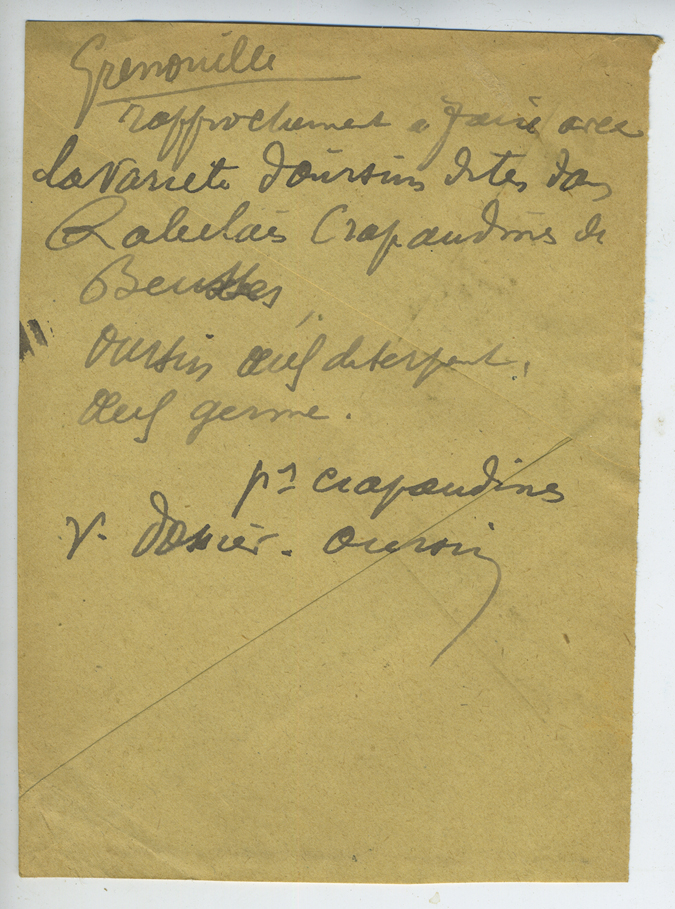 Grenouille
rapprochement a faire avec
la variété d'oursins dites dans
Rabelais Crapaudines de
Beusses
oursin œuf de serpent,
œuf germe.
pr crapaudines
V. dossier. oursin